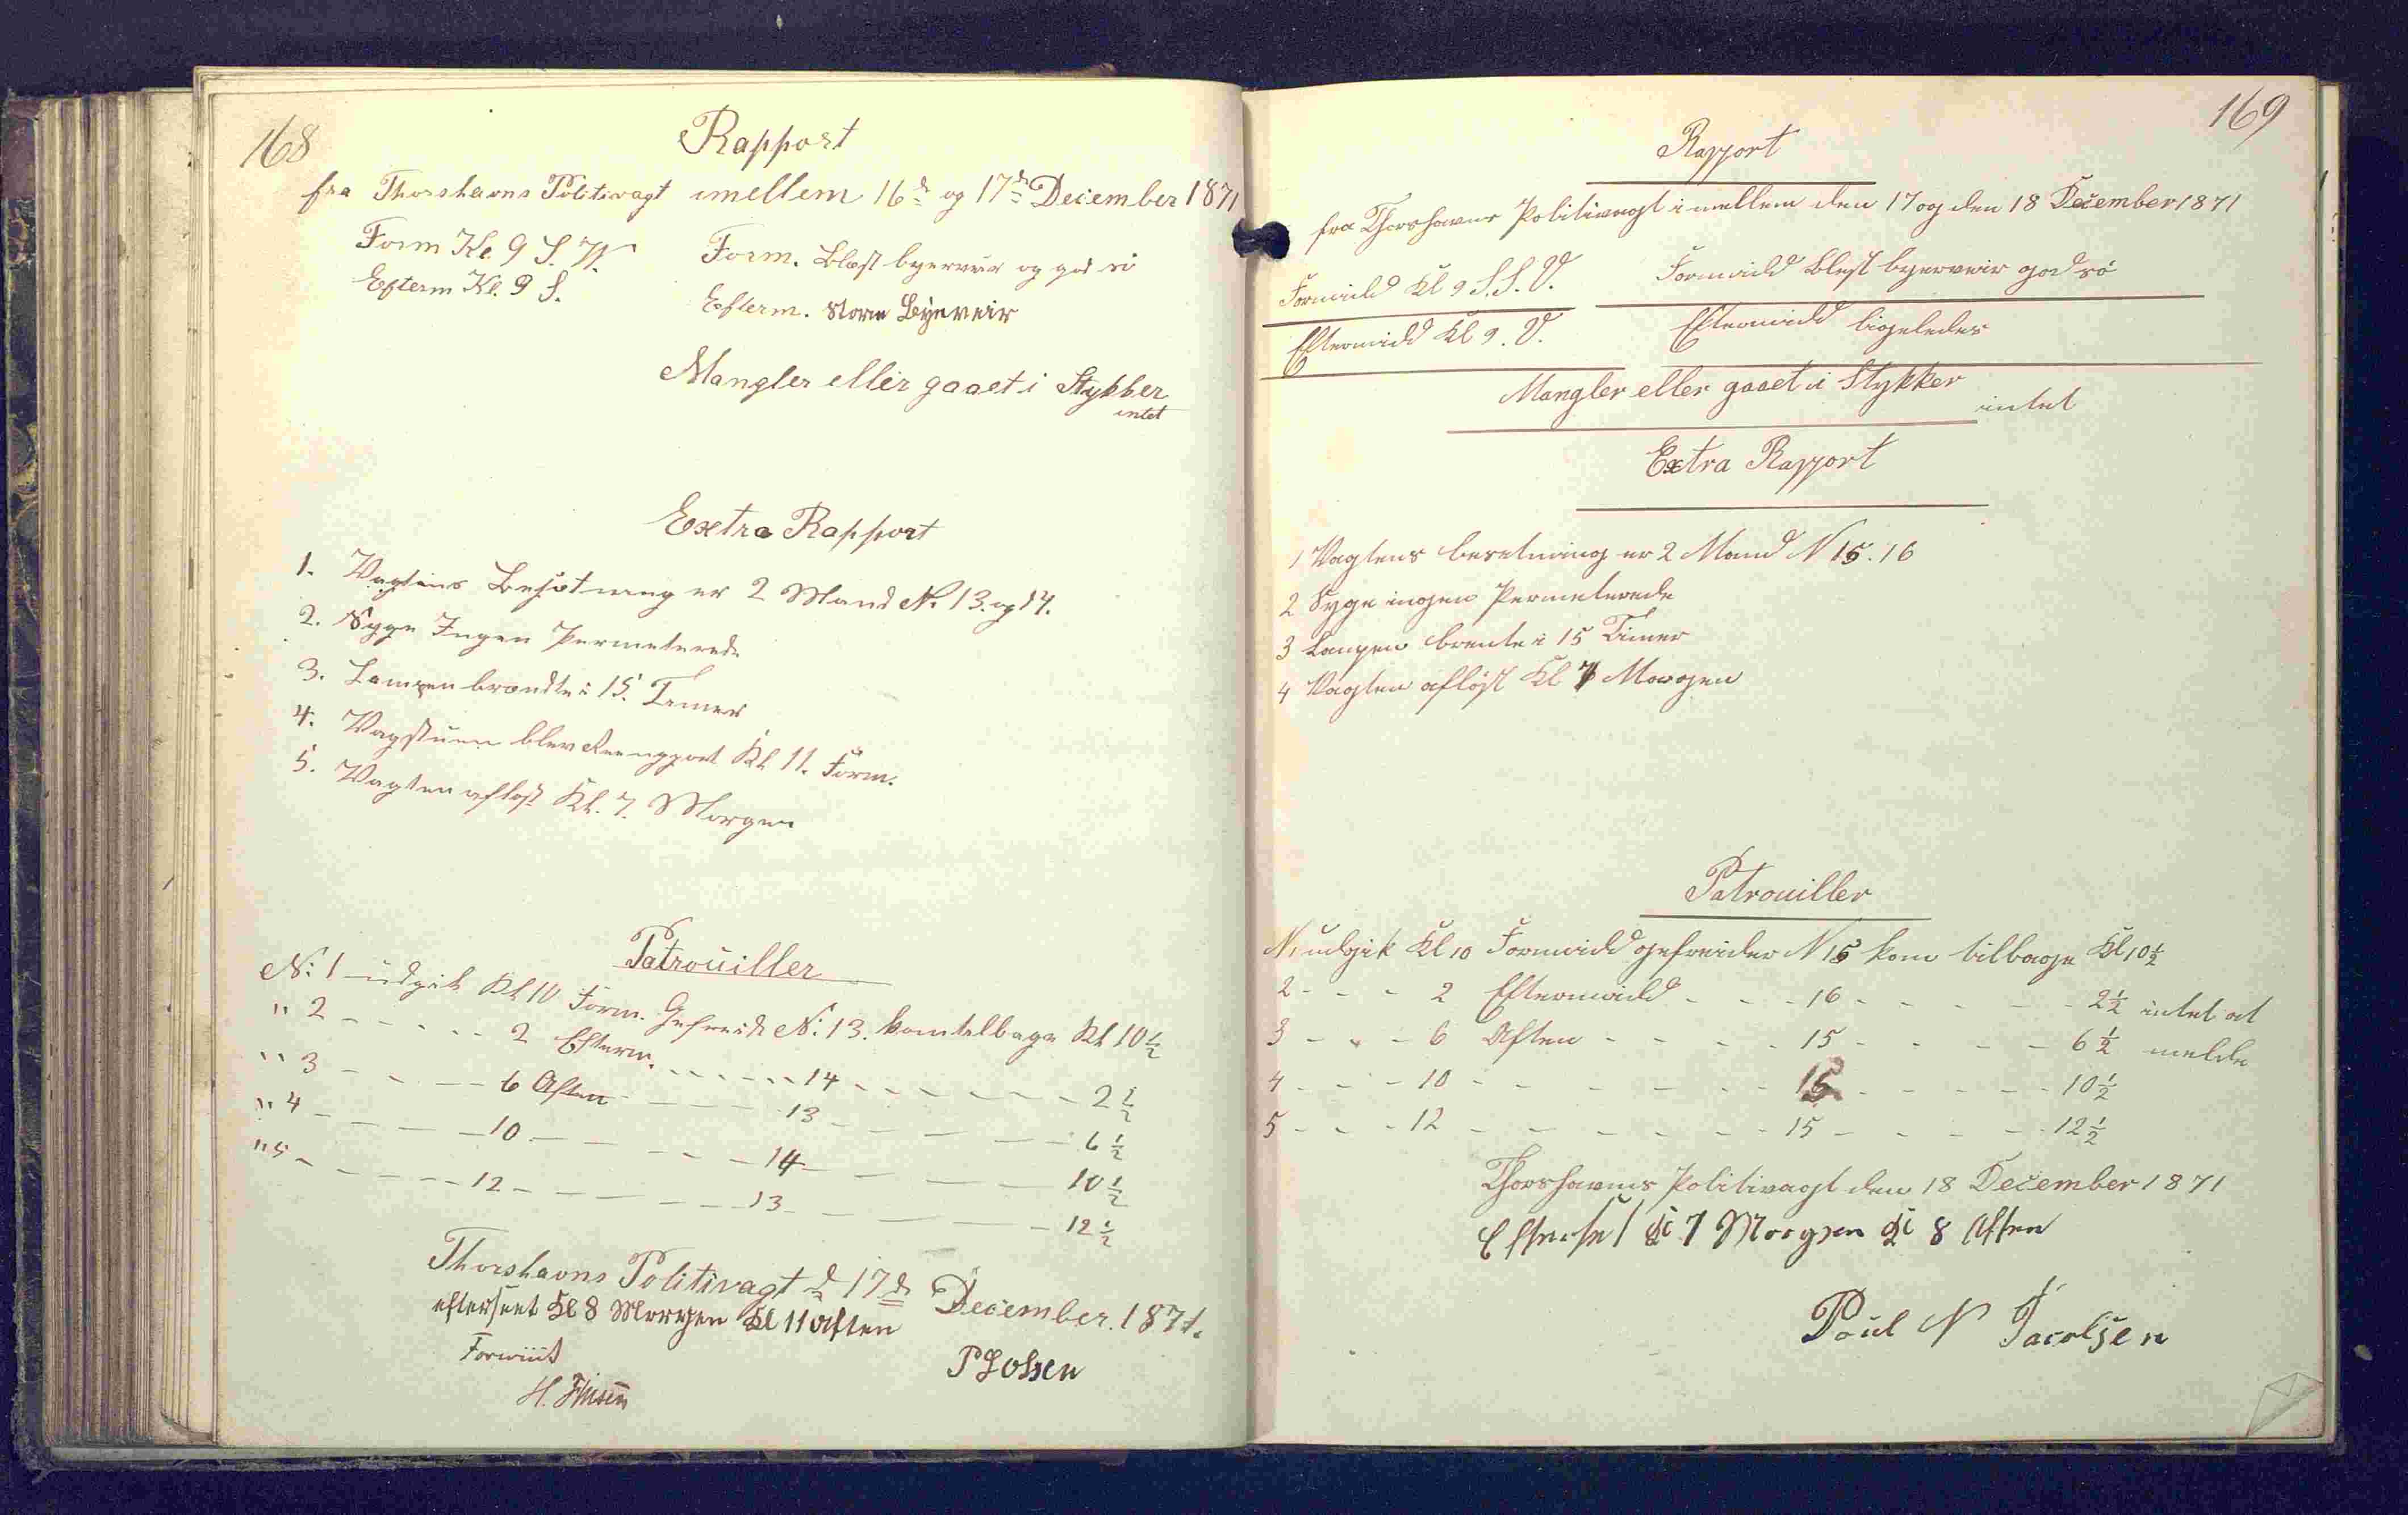 168
Rapport
fra Thorshavns Politivagt imellem 16d og 17d December 1871
Form Kl. 9 S.
Form. Blæst byerveir og god si
Efterm Kl. 9 S.
Efterm. Storm Byeveir
Mangler eller gaaet i Stykker
intet
Extra Rapport
1. Vagtens Besætning er 2 Mand No. 13. og 14.
2. Syge Ingen Permeterede
3. Lampen brændte i 15. Timer
4. Vagstuen blev Reengjort Kl. 11. Form.
5. Vagten afløst Kl. 7. Morgen
Patrouiller
No: 1 udgik Kl 10 Form. Gefreid No: 13. kom telbage Kl 10 1/2
" 2 - - - - - 2 Efterm. - - - - - 14 - - - - - - 2 1/2
" 3 - - - - 6 Aften - - - - 13 - - - - - 6 1/2
" 4 - - - - 10 - - - - - 14 - - - - - 10 1/2
" 5 - - - - 12 - - - - - 13 - - - - - 12 1/2
Thorshavns Politivagt d 17d December. 1871.
efterseet Kl 8 Morgen Kl 11 Aften
P Jolsen
H.
169
Rapport
fra Thorshavns Politivagt imellem den 17 og den 18 December 1871
Formidd Kl 9 S.S.V.
Formidd Blest byerveir god sö
Eftermidd Kl 9. V.
Eftermidd ligeledes
Mangler eller gaaet i Stykker
intet
Extra Rapport
1 Vagtens besetning er 2 Mand N 15. 16
2 Syge ingen Permeterede
3 Lampen brente i 15 Timer
4 Vagten afløst Kl 7 Morgen
Patrouiller
N1 udgik Kl 10 Formidd gefreider N 15 kom tilbage Kl 10 1/2
2 - - - 2 Eftermidd - - - 16 - - - - - 2 1/2 intet at
3 - - - 6 Aften - - - - 15 - - - - 6 1/2 melde
4 - - - 10 - - - - - - 16 - - - - - 10 1/2
5 - - - 12 - - - - - - 15 - - - - 12 1/2
Thorshavns Politivagt den 18 December 1871
Efterset Kl 7 Morgen Kl 8 Aften
Poul N Jacobsen